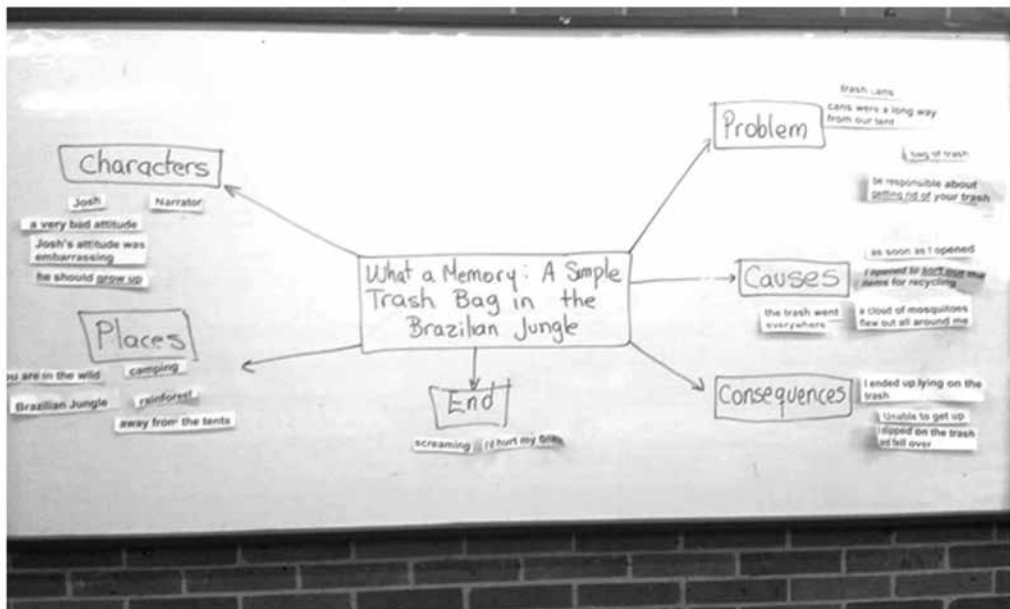 What a Memory: A Simple
Trash Bag in the
Brazilian Jungle
Characters
Josh
Narrator
a very bad attitude
Josh's attitude was
embarrassing
he should grow up
Places
ou are in the wild
camping
Brazilian Jungle
rainforest
away from the tents
End
screaming
I'd hurt my
Problem
trash cans
cans were a long way
from our tent
bag of trash
be responsible about
getting rid of your trash
Causes
as soon as I opened
I opened to sort out the
items for recycling
the trash went
everywhere
a cloud of mosquitoes
flew out all around me
Consequences
I ended up lying on the
trash
Unable to get up
I slipped on the trash
and fell over